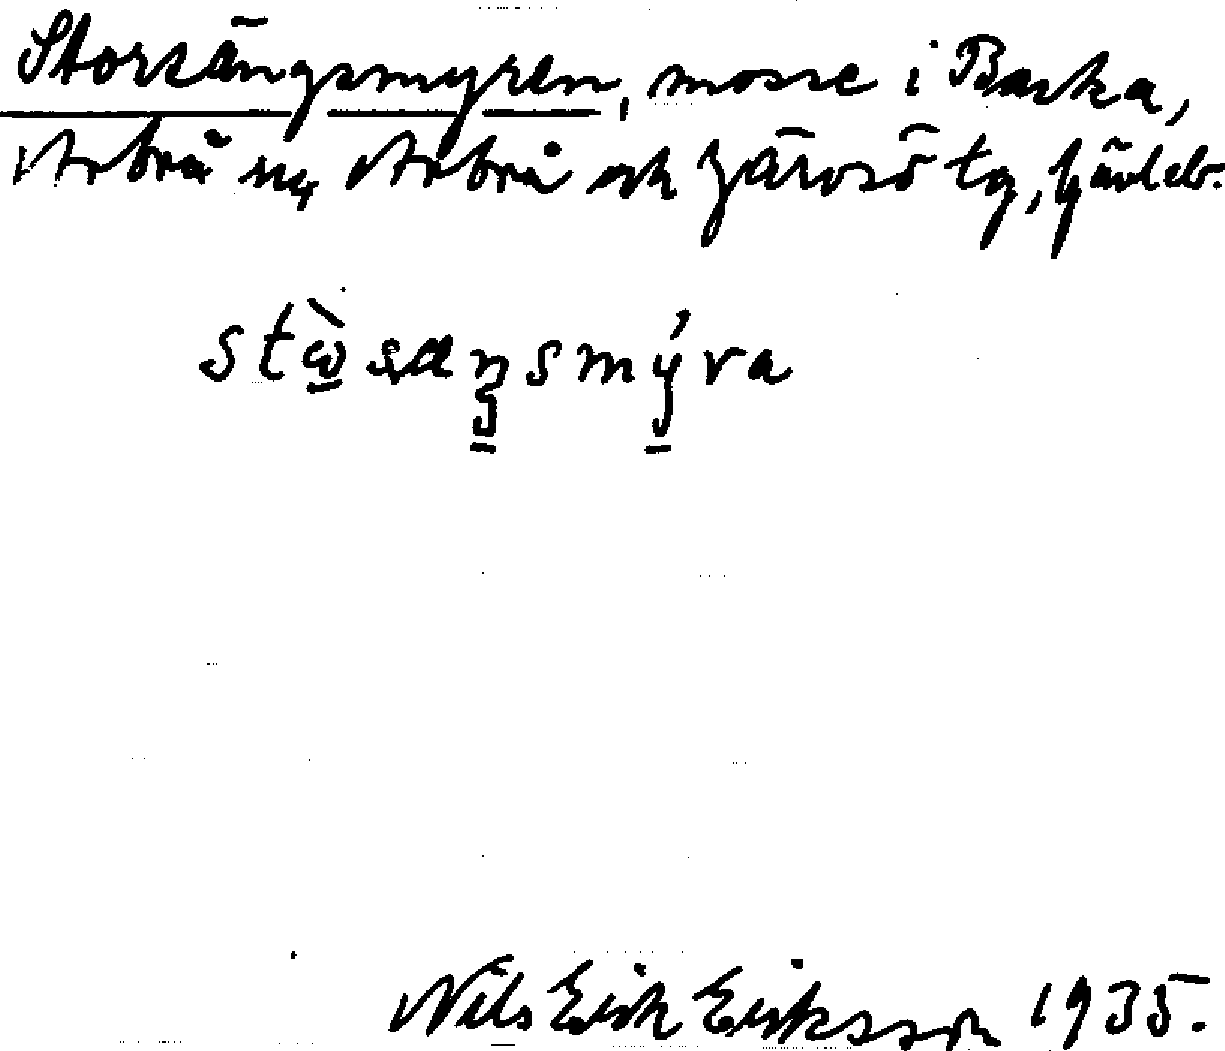 Storsängsmyren, mosse i Backa,
Arbrå sn, Arbrå och Järvsö tg, Gävleb.
stὼ̲saŋ̲smý̲ra
Nils Erik Eriksson 1935.